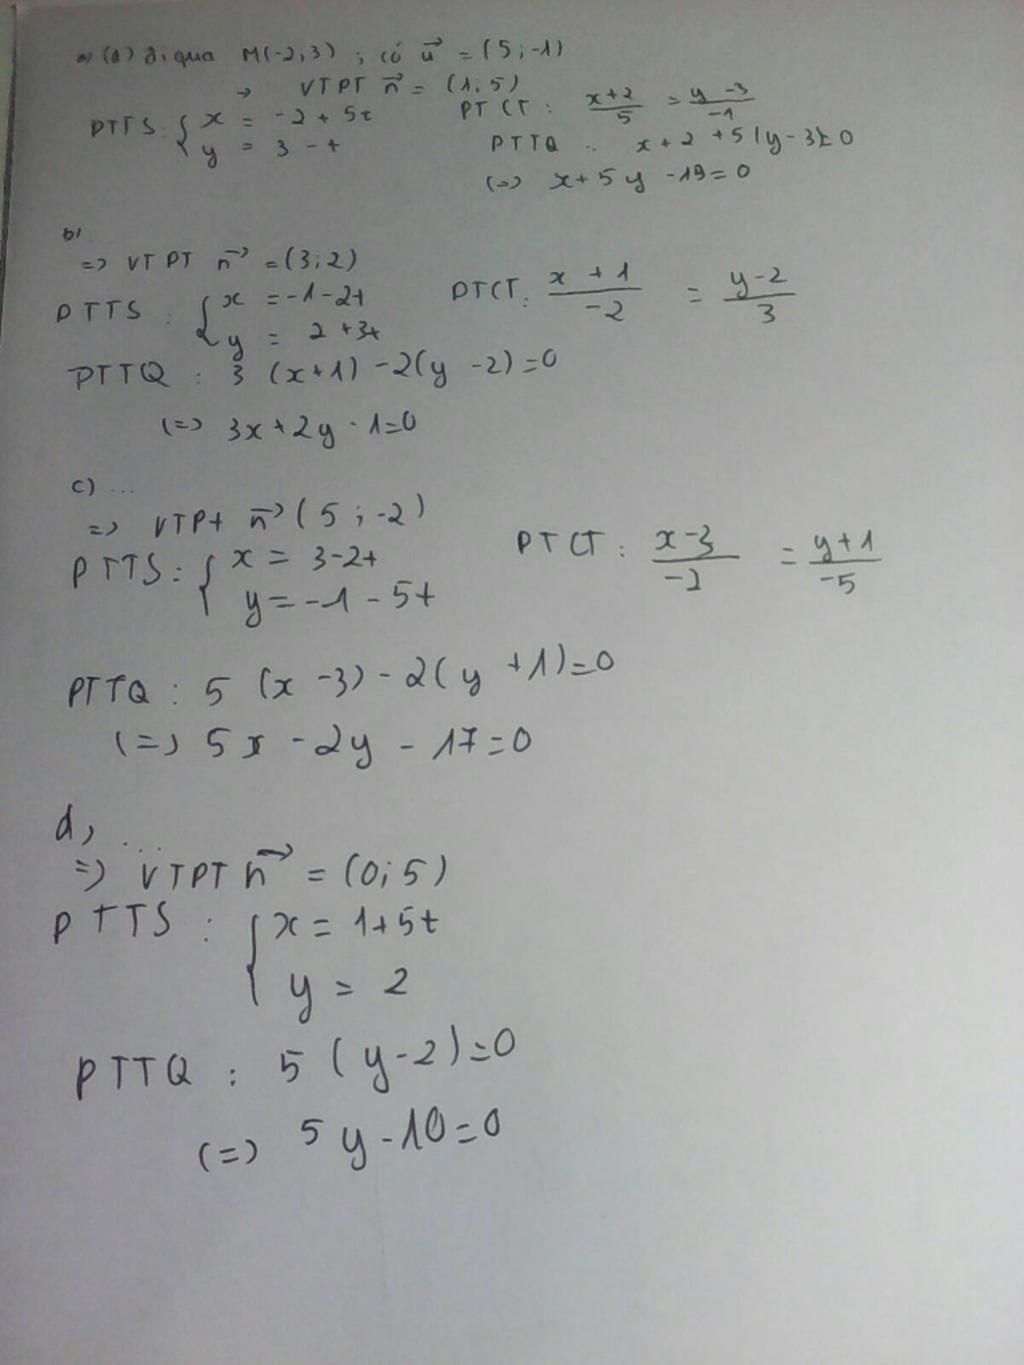 a) (d) đi qua M(-2;3) ; có u⃗ = (5;-1)
→ VTPT n⃗ = (1;5)
PTTS: { x = -2 + 5t
y = 3 - t
PTCT: x+2/5 = y-3/-1
PTTQ: x+2 +5(y-3)=0
(=) x+5y -13=0
b) ...
=> VTPT n⃗ =(3;2)
PTTS : { x = -1-2t
y = 2+3t
PTCT: x+1/-2 = y-2/3
PTTQ : 3 (x+1) -2(y -2)=0
(=> 3x+2y -1=0
c) ...
=> VTPt n⃗ (5;-2)
PTTS: { x = 3-2t
y = -1 - 5t
PTCT: x-3/-2 = y+1/-5
PTTQ: 5 (x -3) -2(y +1)=0
(=) 5x -2y - 17=0
d, ...
=) VTPT n⃗ = (0;5)
PTTS : { x = 1+5t
y = 2
PTTQ : 5 (y-2)=0
(=) 5y-10=0